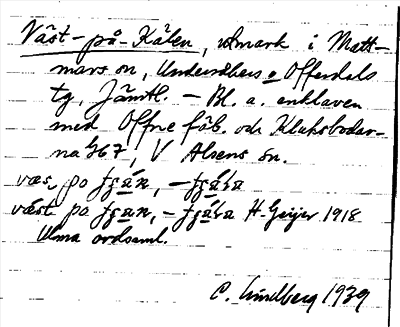 Väst-på-Kälen, utmark i Matt-
mars sn, Undersåkers o Offerdals
tg, Jämtl. – Bl. a. enklaven
med Offne fäb. och Klaksbodar-
na 367, V Alsens sn.
väs, po
väst po H. Geijer 1918
Ulma ordsaml.
C. Lindberg 1939